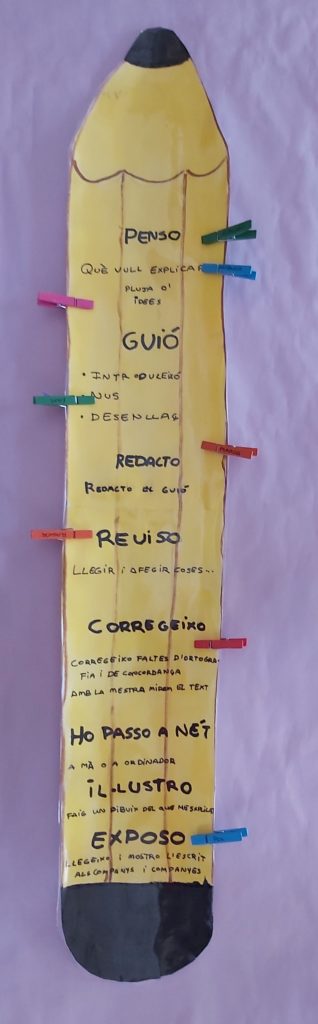 PENSO
QUÈ VULL EXPLICAR
PLUJA D'
IDEES
GUIÓ
• INTRODUCCIÓ
• NUS
• DESENLLAÇ
REDACTO
REDACTO EL GUIÓ
REVISO
LLEGIR I AFEGIR COSES...
CORREGEIXO
CORREGEIXO FALTES D'ORTOGRA-
FIA I DE CONCORDANÇA
AMB LA MESTRA MIREM EL TEXT
HO PASSO A NET
A MÀ O A ORDINADOR
IL·LUSTRO
FAIG UN DIBUIX DEL QUE
EXPOSO
LLEGEIXO I MOSTRO L'ESCRIT
ALS COMPANYS I COMPANYES